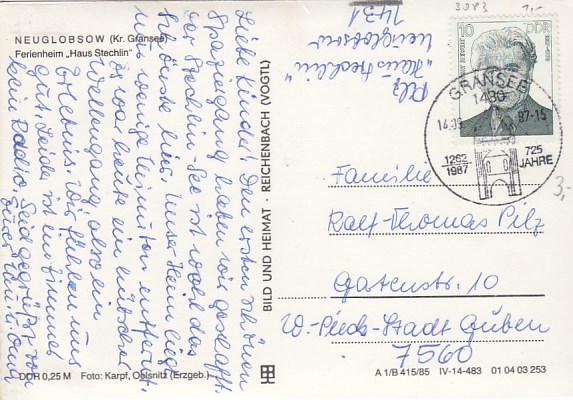 NEUGLOBSOW (Kr. Gransee)
Ferienheim „Haus Stechlin"
Liebe Kinder! Den ersten schönen
Spaziergang haben wir geschafft.
Der Stechlin-See ist wohl das
schönste hier. Unser Heim liegt
nur wenige Minuten entfernt.
Es war heute ein
Wellengang, also ein
Erlebnis. Wir fühlen uns
gut. Leider ist im Zimmer
kein Radio. Seid gegrüßt von
DDR 0,25 M Foto: Karpf, Oelsnitz (Erzgeb.)
BILD UND HEIMAT · REICHENBACH (VOGTL)
Pilz
"Haus Stechlin"
Neuglobsow
1431
3083
10 DDR
GRANSEE
1430
14.09. 87-15
1262
1987
725
JAHRE
3,-
Familie
Ralf-Thomas Pilz
Gartenstr. 10
W.-Pieck-Stadt Guben
7560
A 1/B 415/85 IV-14-483 01 04 03 253